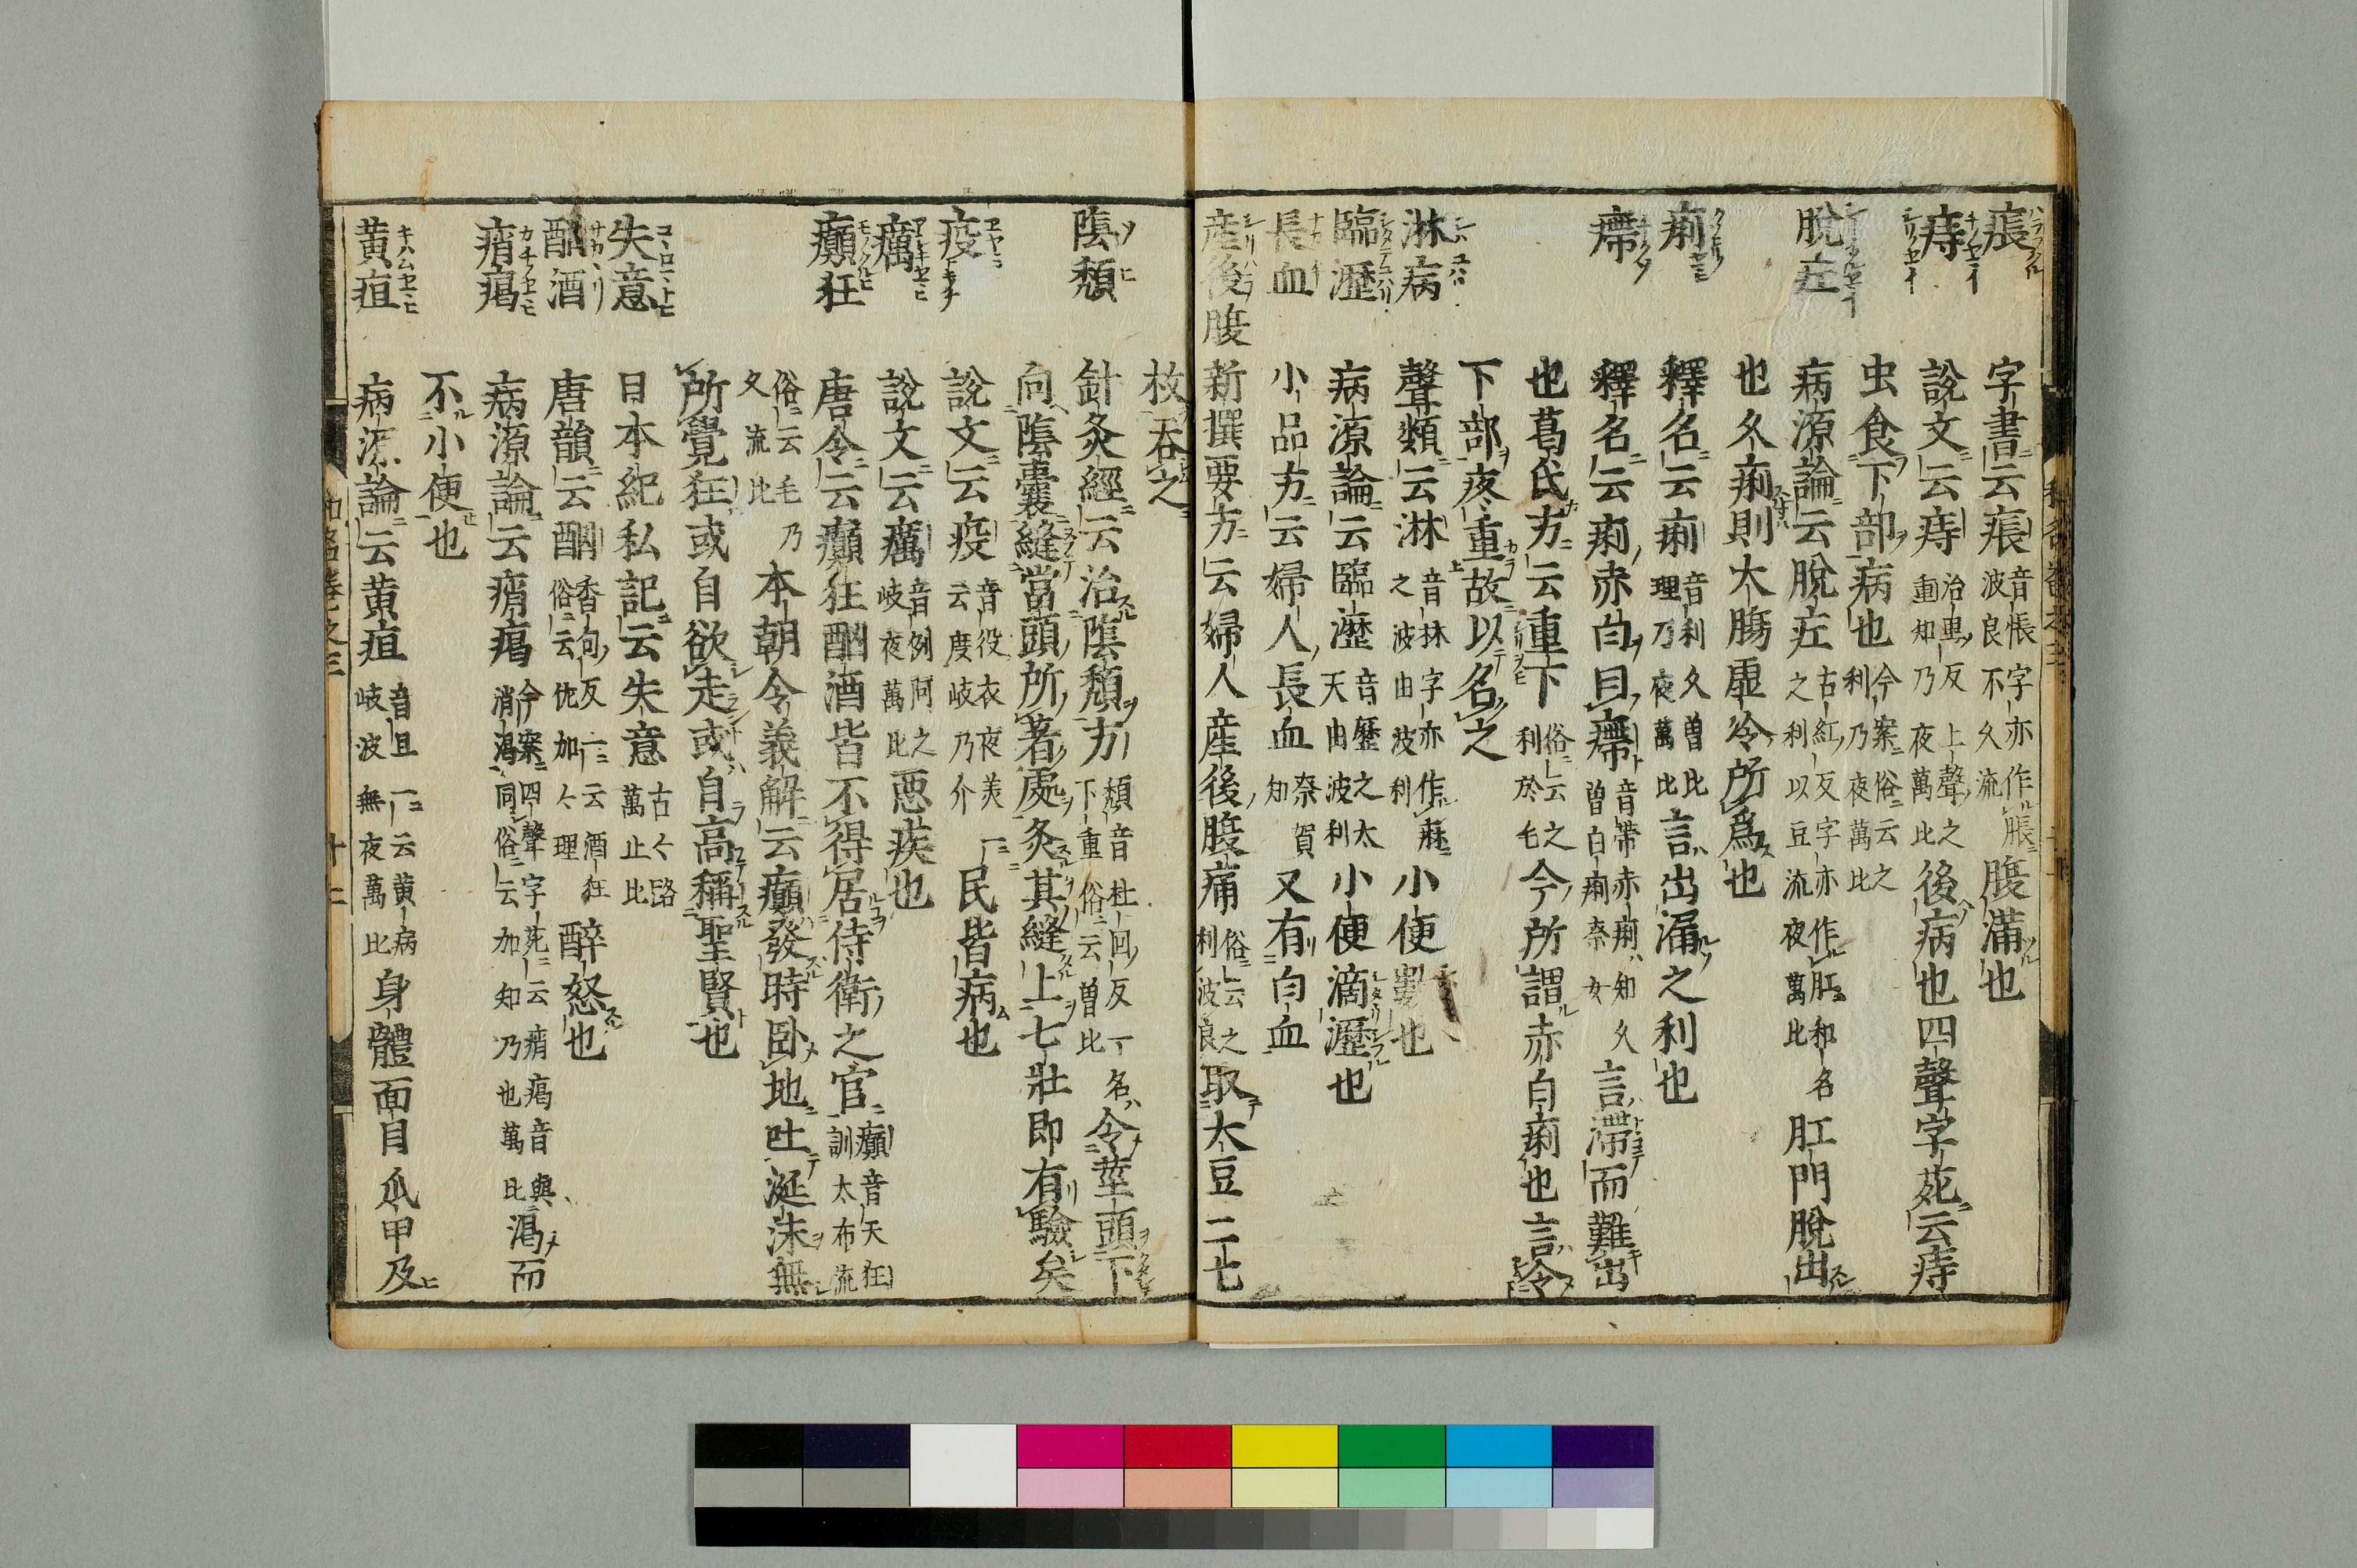 瘬 字書云痮 音帳字亦作脹 波良不久流 腹満也
痔 說文云痔 治里反上聲之 重知乃夜萬比 後病也四聲字苑云痔
虫食下部病也 今案俗云之 利乃夜萬比
脫疘 病源論云脫疘 古紅反字亦作肛和名 之利以豆流夜萬比 肛門脫出
也久痢則大腸虛冷所爲也
痢 釋名云痢 音利久曽比 理乃夜萬比 言出漏之利也
㿃 釋名云痢赤白曰㿃 音帶赤痢知久 曽白痢奈女 言滯而難出
也葛氏方云重下 俗云之 利於毛 今所謂赤白痢也言令
下部疼重故以名之
淋病 聲類云淋 音林字亦作痳 之波由波利 小便數也
臨瀝 病源論云臨瀝 音歷之太 天由波利 小便滴瀝也
長血 小品方云婦人長血 奈賀 知 又有白血
産後腹 新撰要方云婦人産後腹痛 俗云之 利波良 取大豆二七
枚呑之
陰㿗 針灸經云治陰㿗方 㿗音杜回反一名 下重俗云曽比 令莖頭下
向陰囊縫當頭所著處灸其縫上七壯即有驗矣
疫 說文云疫 音役衣夜美一 云度岐乃介 民皆病也
癘 說文云癘 音例阿之 岐夜萬比 惡疾也
癲狂 唐令云癲狂酗酒皆不得居侍衛之官 癲音天狂 訓太布流
俗云毛乃 久流比 本朝令義解云癲發時臥地吐涎沫無
所覺狂或自欲走或自高稱聖賢也
失意 日本紀私記云失意 古々路 萬止比
酗酒 唐韻云酗 香向反一云酒狂 俗云佐加々理 醉怒也
痟㾂 病源論云痟㾂 今案四聲字苑云痟㾂音與 消渴同俗云加知乃也萬比 渴而
不小便也
黄疸 病源論云黄疸 音旦一云黄病 岐波無夜萬比 身體面目爪甲及